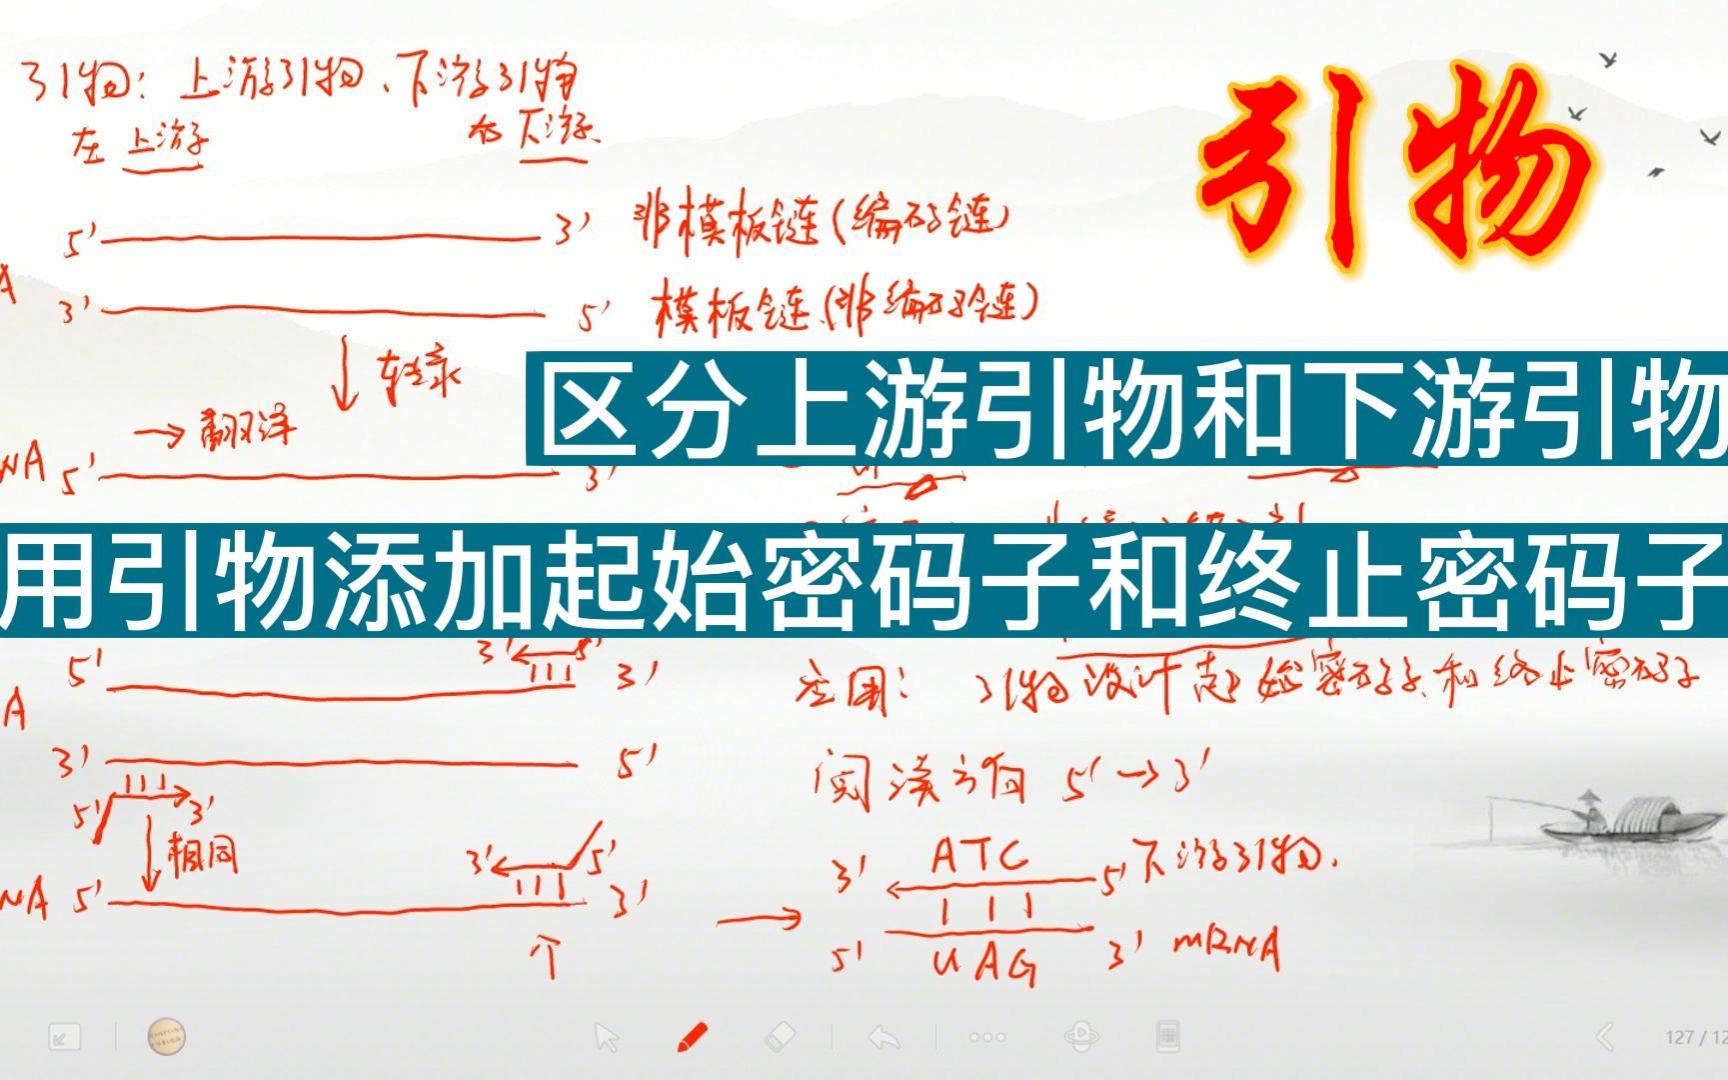 引物：上游引物、下游引物
引物
左 上游
右 下游
5' 3' 非模板链(编码链)
3' 5' 模板链(非编码链)
转录
区分上游引物和下游引物
→ 翻译
NA 5' 3'
用引物添加起始密码子和终止密码子
3' 5'
5' 3'
应用： 引物设计起始密码子和终止密码子
A
3' 5'
阅读方向 5'→3'
5' 3'
相同
3' 5'
3' ATC 5' 下游引物.
NA 5' 3'
5' UAG 3' mRNA
个
127 / 12